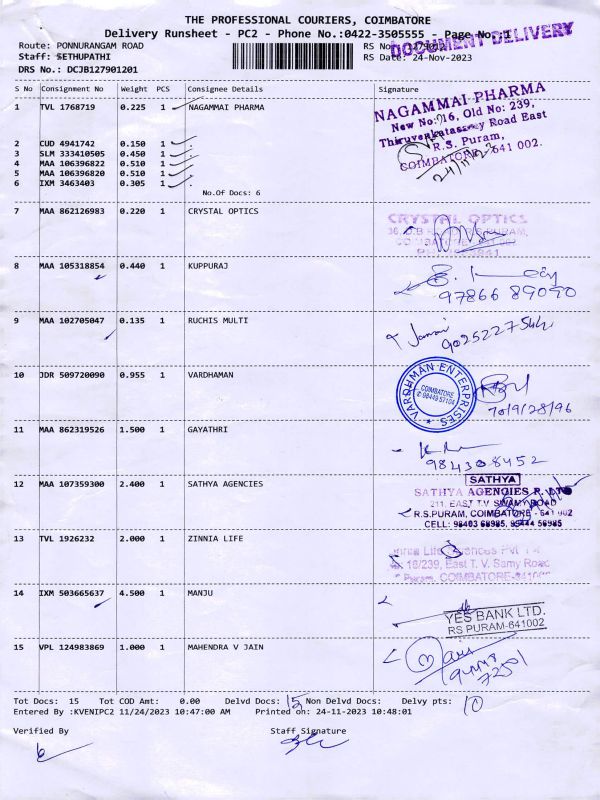 THE PROFESSIONAL COURIERS, COIMBATORE
Delivery Runsheet - PC2 - Phone No.:0422-3505555 - Page No.:1
DOCUMENT DELIVERY
Route: PONNURANGAM ROAD
RS No: 1279012
Staff: SETHUPATHI
RS Date: 24-Nov-2023
DRS No.: DCJB127901201
S No Consignment No Weight PCS Consignee Details Signature
1 TVL 1768719 0.225 1 NAGAMMAI PHARMA
NAGAMMAI PHARMA
New No: 16, Old No: 239,
Thiruvenkatasamy Road East
R.S. Puram,
COIMBATORE - 641 002.
24/11/23
2 CUD 4941742 0.150 1 .
3 SLM 333410505 0.450 1 .
4 MAA 106396822 0.510 1 .
5 MAA 106396820 0.510 1 .
6 IXM 3463403 0.305 1 .
No.Of Docs: 6
7 MAA 862126983 0.220 1 CRYSTAL OPTICS
CRYSTAL OPTICS
8 MAA 105318854 0.440 1 KUPPURAJ
97866 89090
9 MAA 102705047 0.135 1 RUCHIS MULTI
9025227544
10 JDR 509720090 0.955 1 VARDHAMAN
VARDHMAN ENTERPRISES
COIMBATORE
✆ 98449 57104
70/9/28/96
11 MAA 862319526 1.500 1 GAYATHRI
984308452
12 MAA 107359300 2.400 1 SATHYA AGENCIES
SATHYA
SATHYA AGENCIES P. LTD
211, EAST T.V SWAMY ROAD
R.S.PURAM, COIMBATORE - 641 002
CELL: 98403 68985, 95444 56985
13 TVL 1926232 2.000 1 ZINNIA LIFE
Life Sciences Pvt
18/239, East T. V. Samy Road
Puram, COIMBATORE-641
14 IXM 503665637 4.500 1 MANJU
YES BANK LTD.
RS PURAM-641002
15 VPL 124983869 1.000 1 MAHENDRA V JAIN
Tot Docs: 15 Tot COD Amt: 0.00 Delvd Docs: 15 Non Delvd Docs: Delvy pts: 10
Entered By :KVENIPC2 11/24/2023 10:47:00 AM Printed on: 24-11-2023 10:48:01
Verified By
Staff Signature